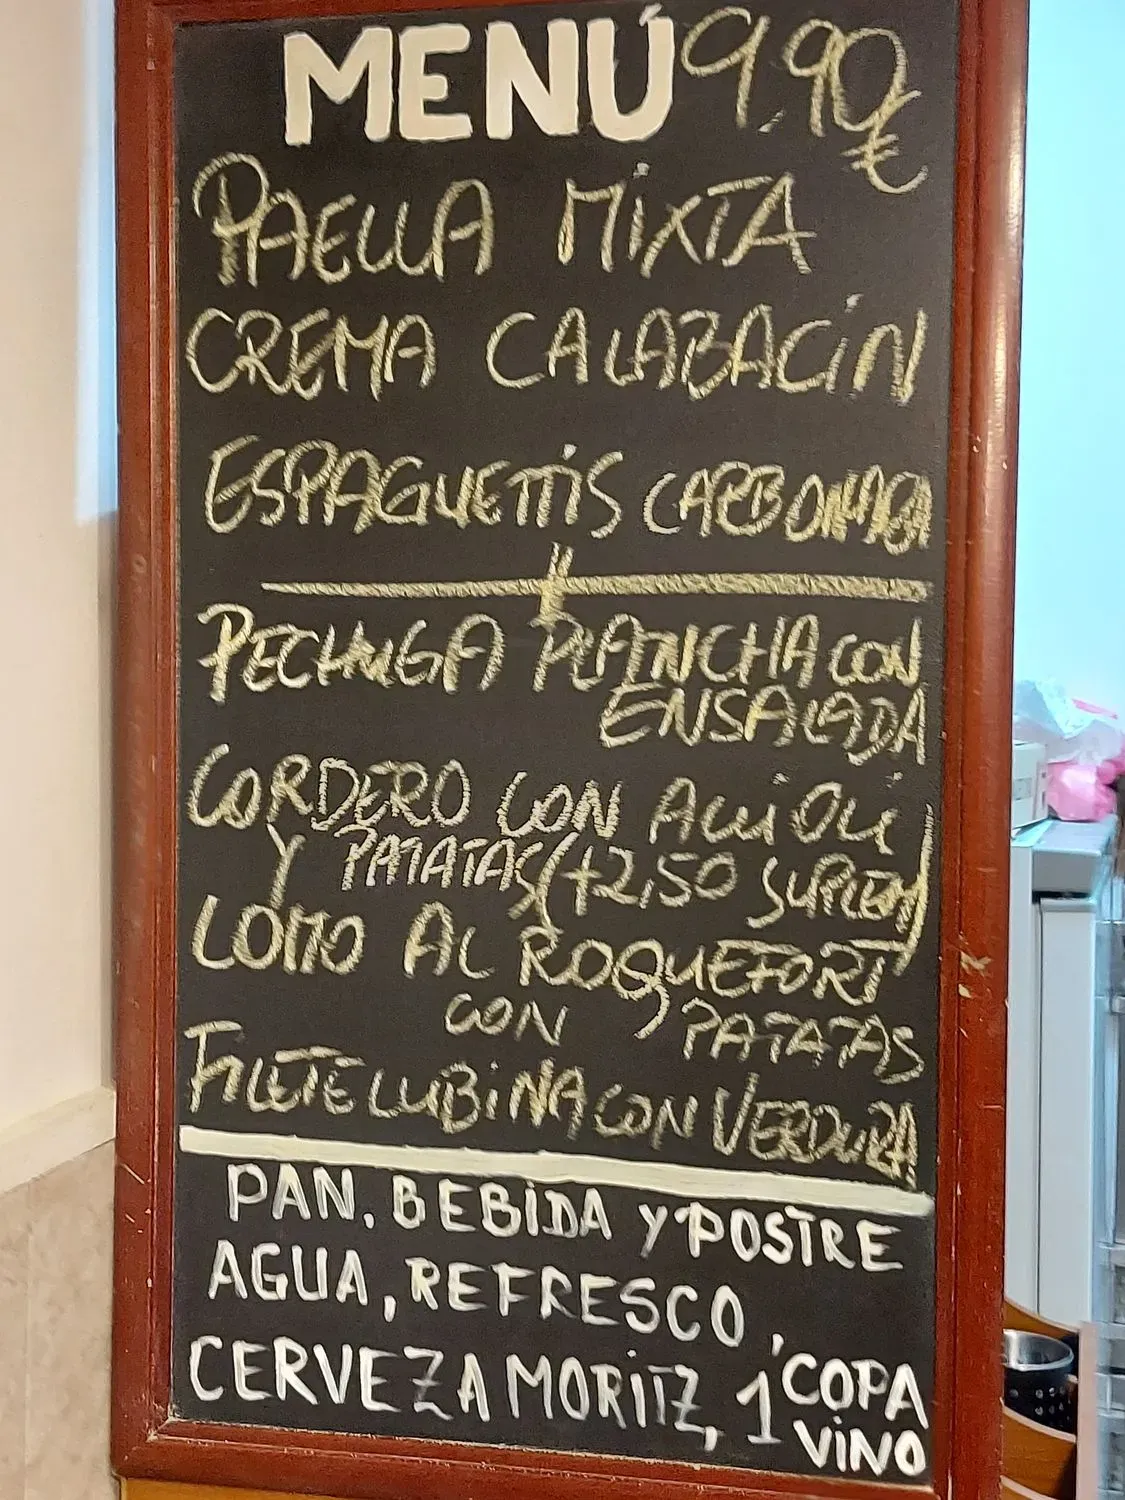 MENÚ 9,90€
PAELLA MIXTA
CREMA CALABACIN
ESPAGUETTIS CARBONARA
PECHUGA PLANCHA CON
ENSALADA
CORDERO CON ALLIOLI
Y PATATAS (+2,50 SUPLEM)
LOMO AL ROQUEFORT
CON PATATAS
FILETE LUBINA CON VERDURA
PAN, BEBIDA Y POSTRE
AGUA, REFRESCO,
CERVEZA MORITZ, 1 COPA
VINO